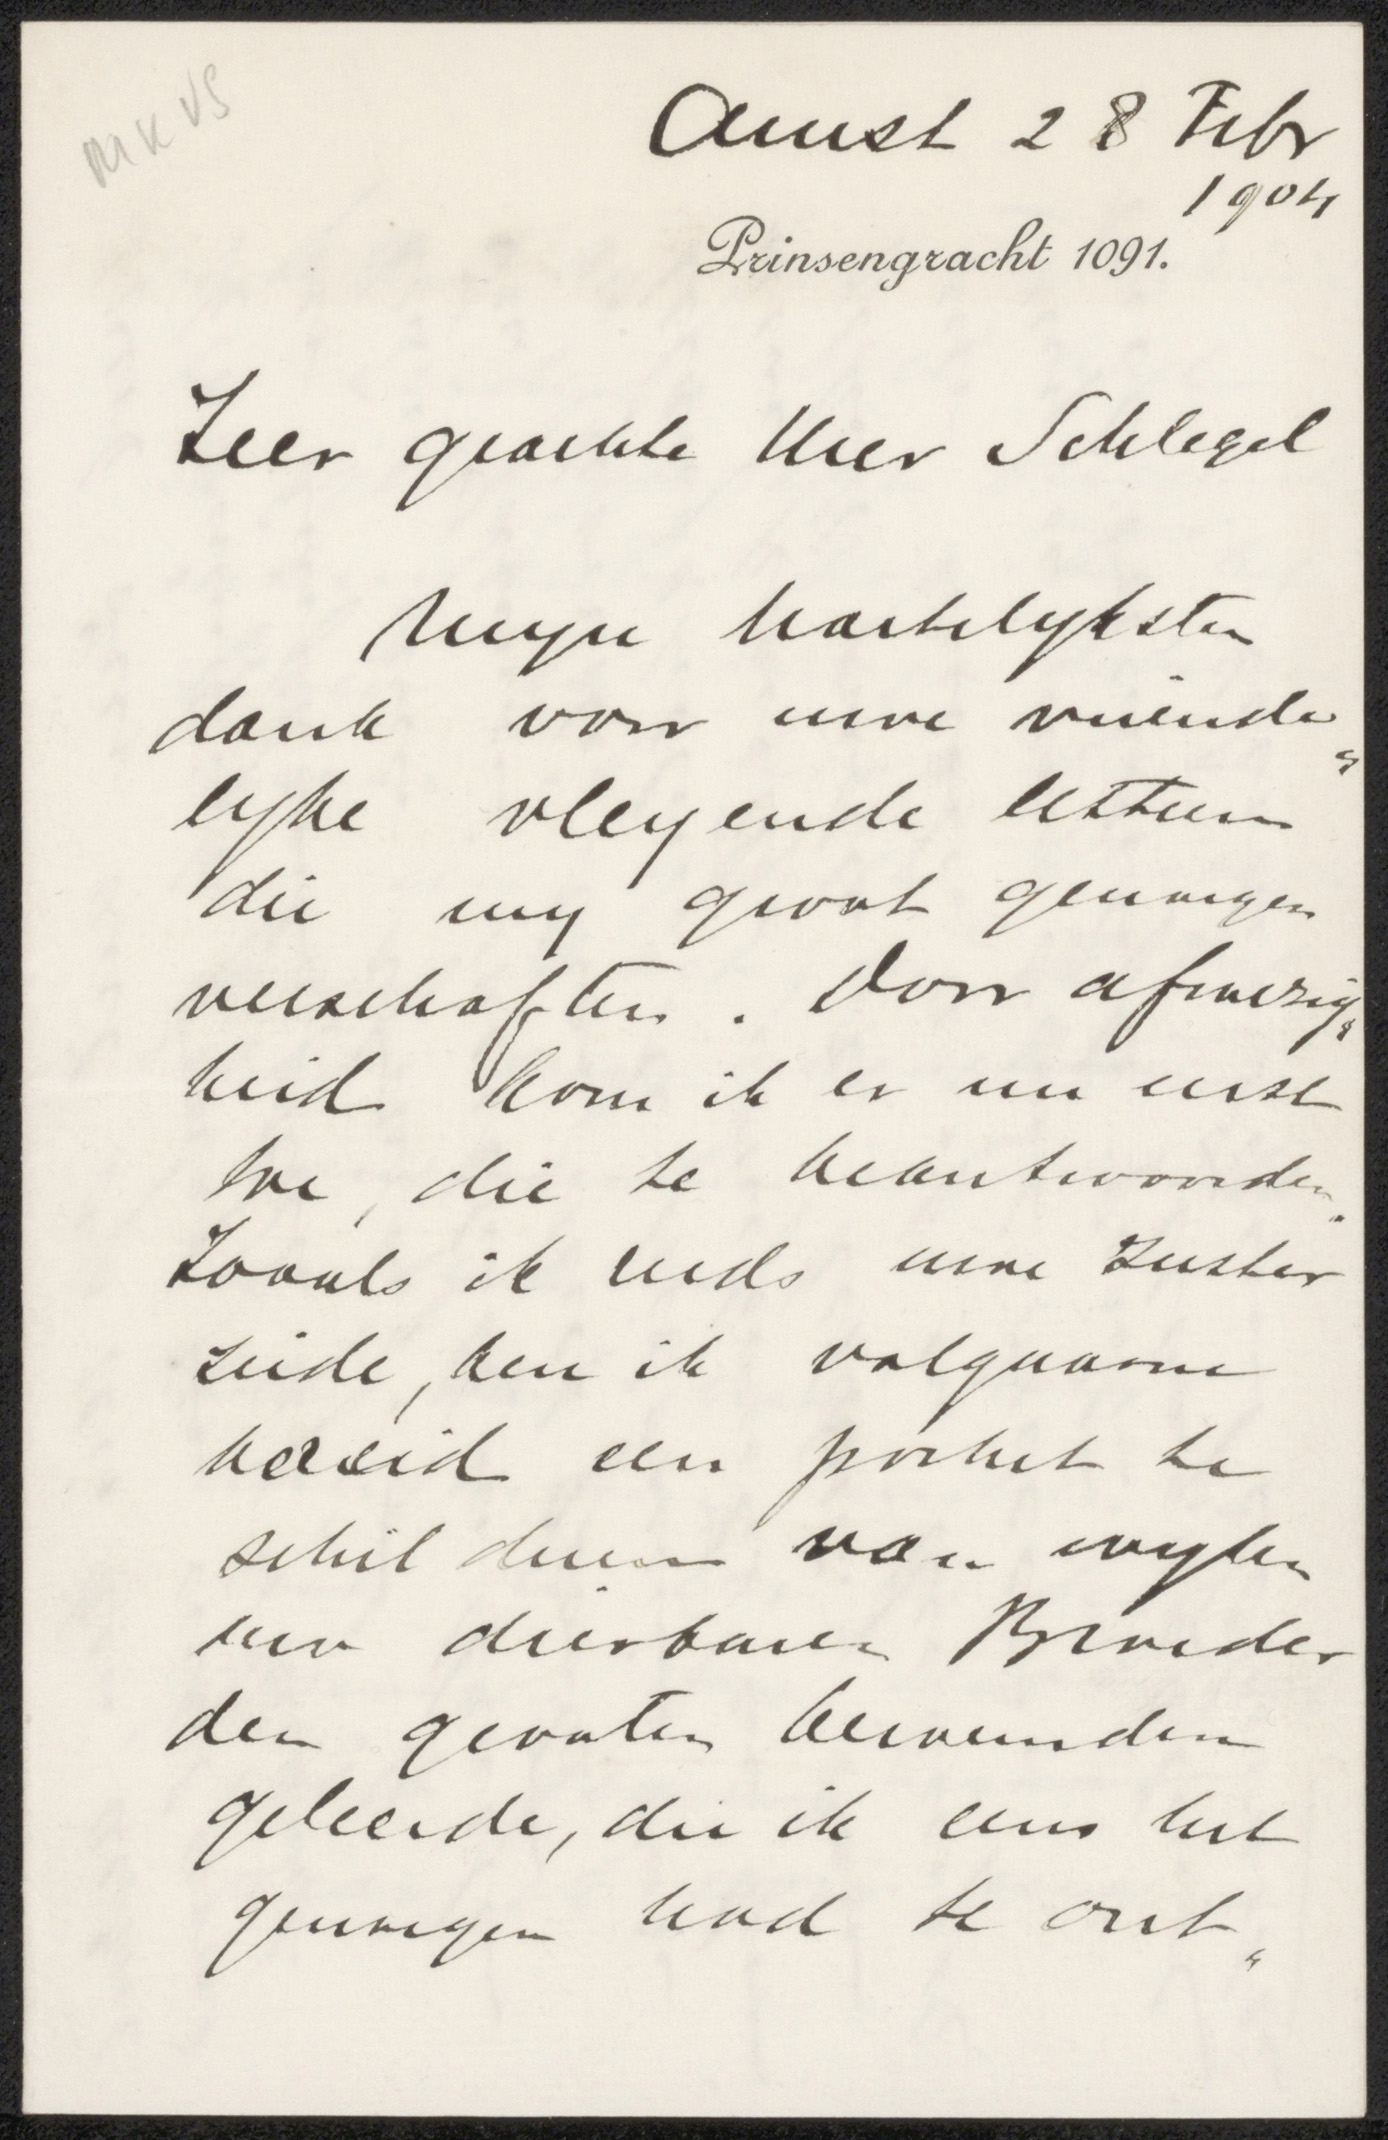 MKVS
Amst 28 Febr
1904
Prinsengracht 1091.
Zeer geachte Heer Schlegel
Mijn hartelijksten
dank voor uwe vriende„
lijke vleyende letteren
die mij groot genoegen
verschaften. Door afwezig„
heid kom ik er nu eerst
toe, die te beantwoorden.
Zooals ik reeds uwe zuster
zeide, ben ik volgaarne
bereid een portret te
schilderen van wijlen
uw dierbaren Broeder
den grooten beroemden
geleerde, die ik eens het
genoegen had te ont„